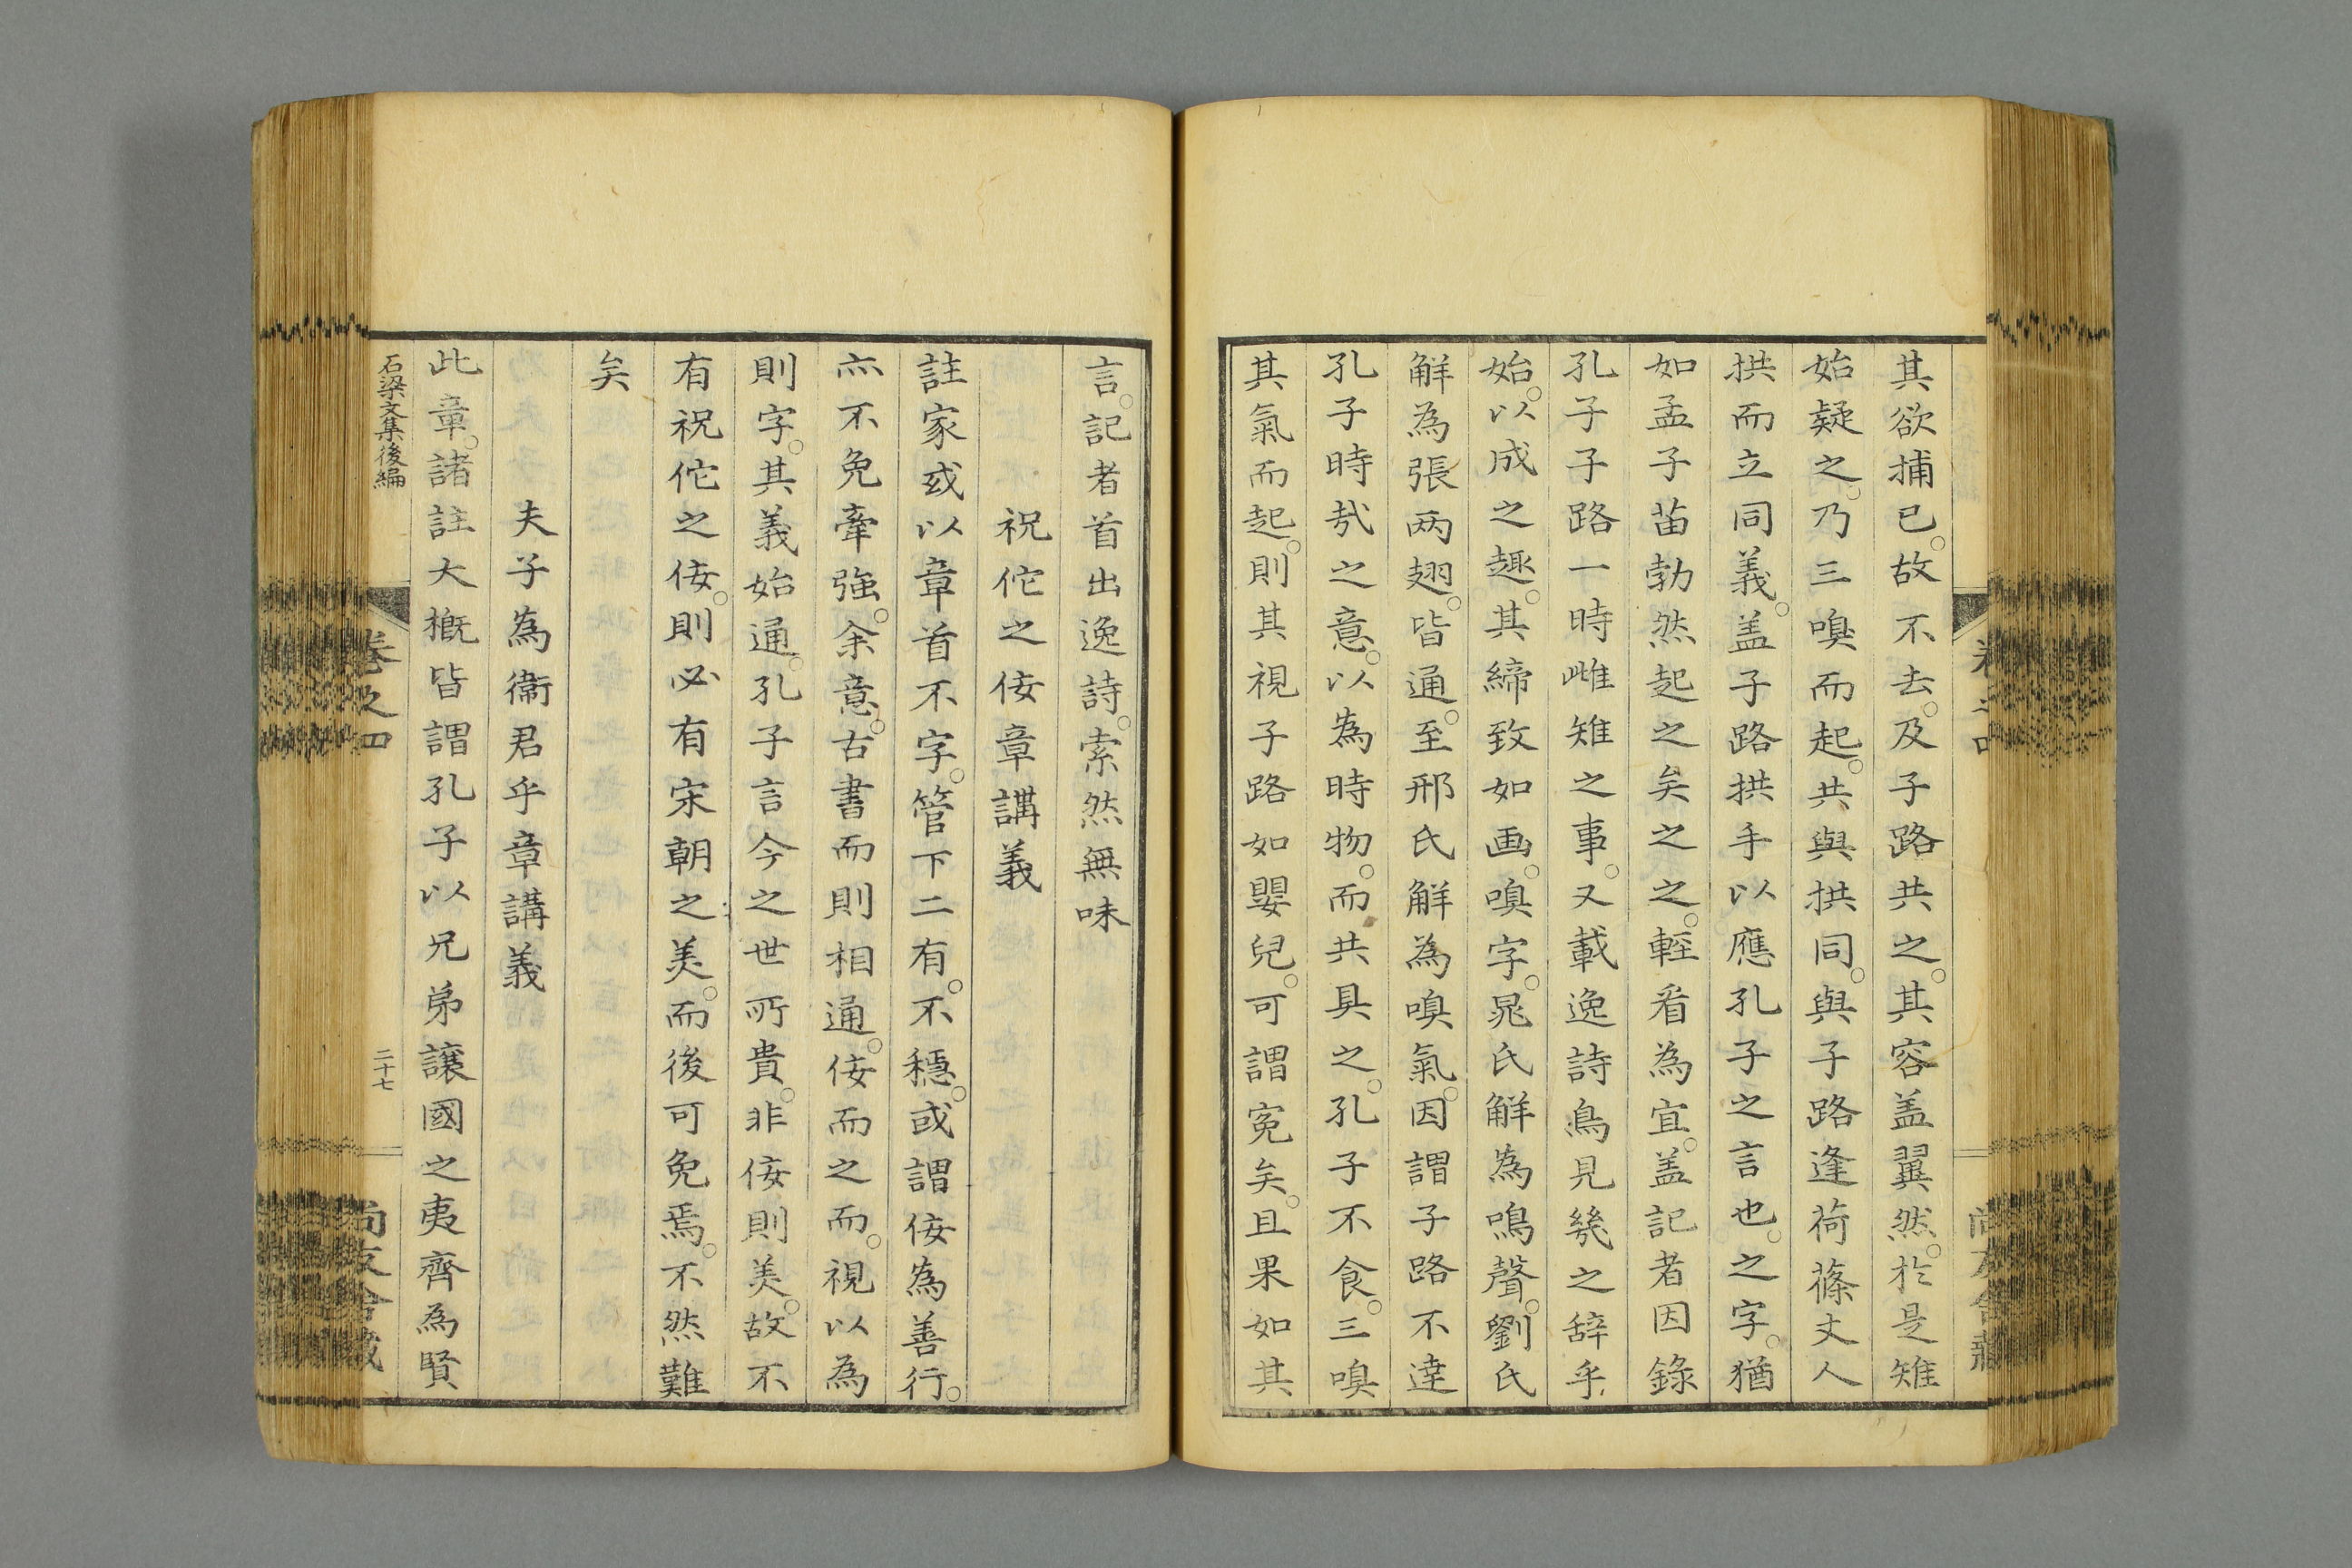 其欲捕已。故不去。及子路共之。其容盖翼然。於是雉
始疑之。乃三嗅而起。共與拱同。與子路逢荷蓧丈人
拱而立同義。盖子路拱手以應孔子之言也。之字。猶
如孟子苗勃然起之矣之之。輕看為宜。盖記者因錄
孔子子路一時雌雉之事。又載逸詩鳥見幾之辞乎
始。以成之趣。其締致如画。嗅字。晁氏觧為鳴聲。劉氏
觧為張两翅。皆通。至邢氏觧為嗅氣。因謂子路不達
孔子時㢤之意。以為時物。而共具之。孔子不食。三嗅
其氣而起。則其視子路如嬰兒。可謂寃矣。且果如其
言。記者首出逸詩。索然無味
祝佗之侫章講義
註家或以章首不字。管下二有。不穩。或謂侫為善行。
亦不免牽強。余意。古書而則相通。侫而之而。視以為
則字。其義始通。孔子言今之世所貴。非侫則美。故不
有祝佗之侫。則必有宋朝之美。而後可免焉。不然難
矣
夫子為衞君乎章講義
此章。諸註大概皆謂孔子以兄弟譲國之夷齊為賢
石梁文集後編
卷之四
二十七
尚友舎蔵